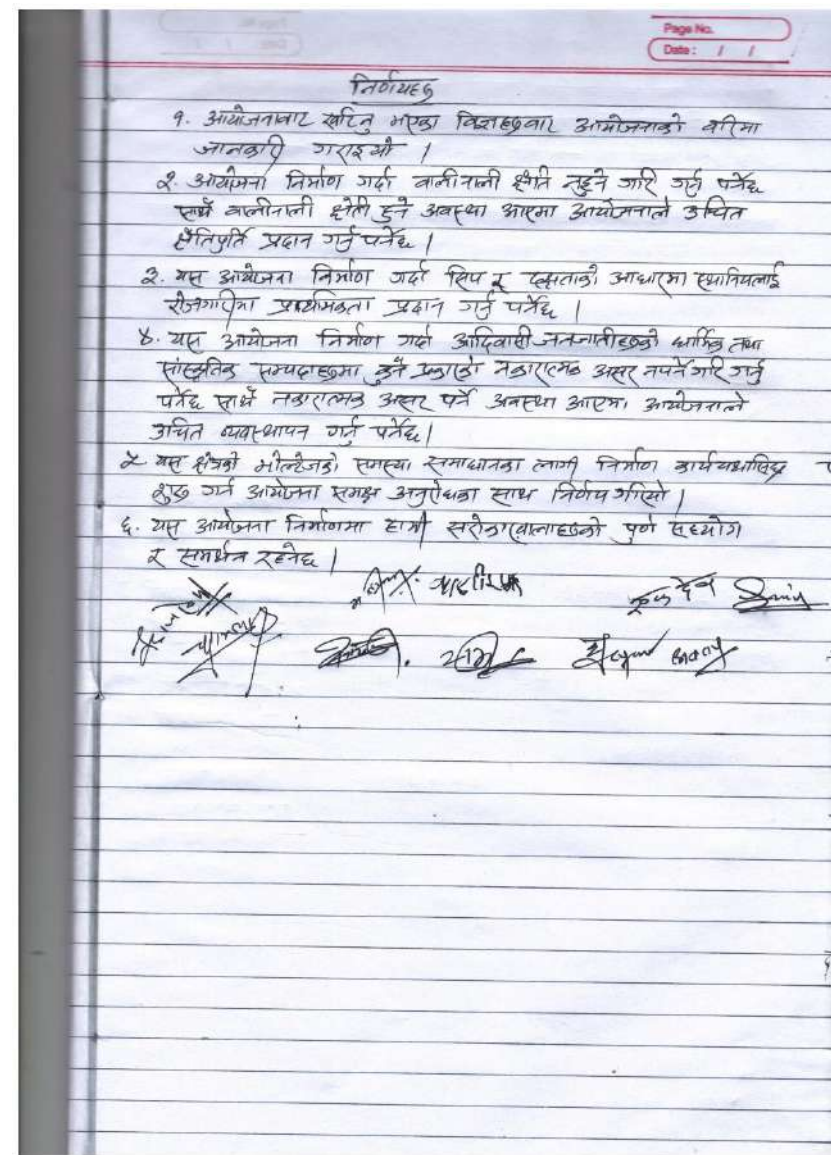 Page No.
Date : / /
निर्णयहरु
१. आयोजनाबाट खटिनु भएका विज्ञहरुबाट आयोजनाको बारेमा
जानकारी गराइयो ।
२. आयोजना निर्माण गर्दा बालीनाली क्षति नहुने गरि गर्नु पर्नेछ
साथै बालीनाली क्षेती हुने अवस्था आएमा आयोजनाले उचित
क्षेतिपुर्ति प्रदान गर्नु पर्नेछ ।
३. यस आयोजना निर्माण गर्दा सिप र दक्षताको आधारमा स्थानियलाई
रोजगारीमा प्राथमिकता प्रदान गर्नु पर्नेछ ।
४. यस आयोजना निर्माण गर्दा आदिवासी जनजातीहरुको धार्मिक तथा
सांस्कृतिक सम्पदाहरुमा कुनै प्रकारको नकारात्मक असर नपर्ने गरि गर्नु
पर्नेछ साथै नकारात्मक असर पर्ने अवस्था आएमा आयोजनाले
उचित व्यवस्थापन गर्नु पर्नेछ ।
५. यस क्षेत्रको भोल्टेजको समस्या समाधानका लागी निर्माण कार्य यथासिघ्र
शुरु गर्न आयोजना समक्ष अनुरोधका साथ निर्णय गरियो ।
६. यस आयोजना निर्माणमा हामी सरोकारवालाहरुको पुर्ण सहयोग
र समर्थन रहनेछ ।